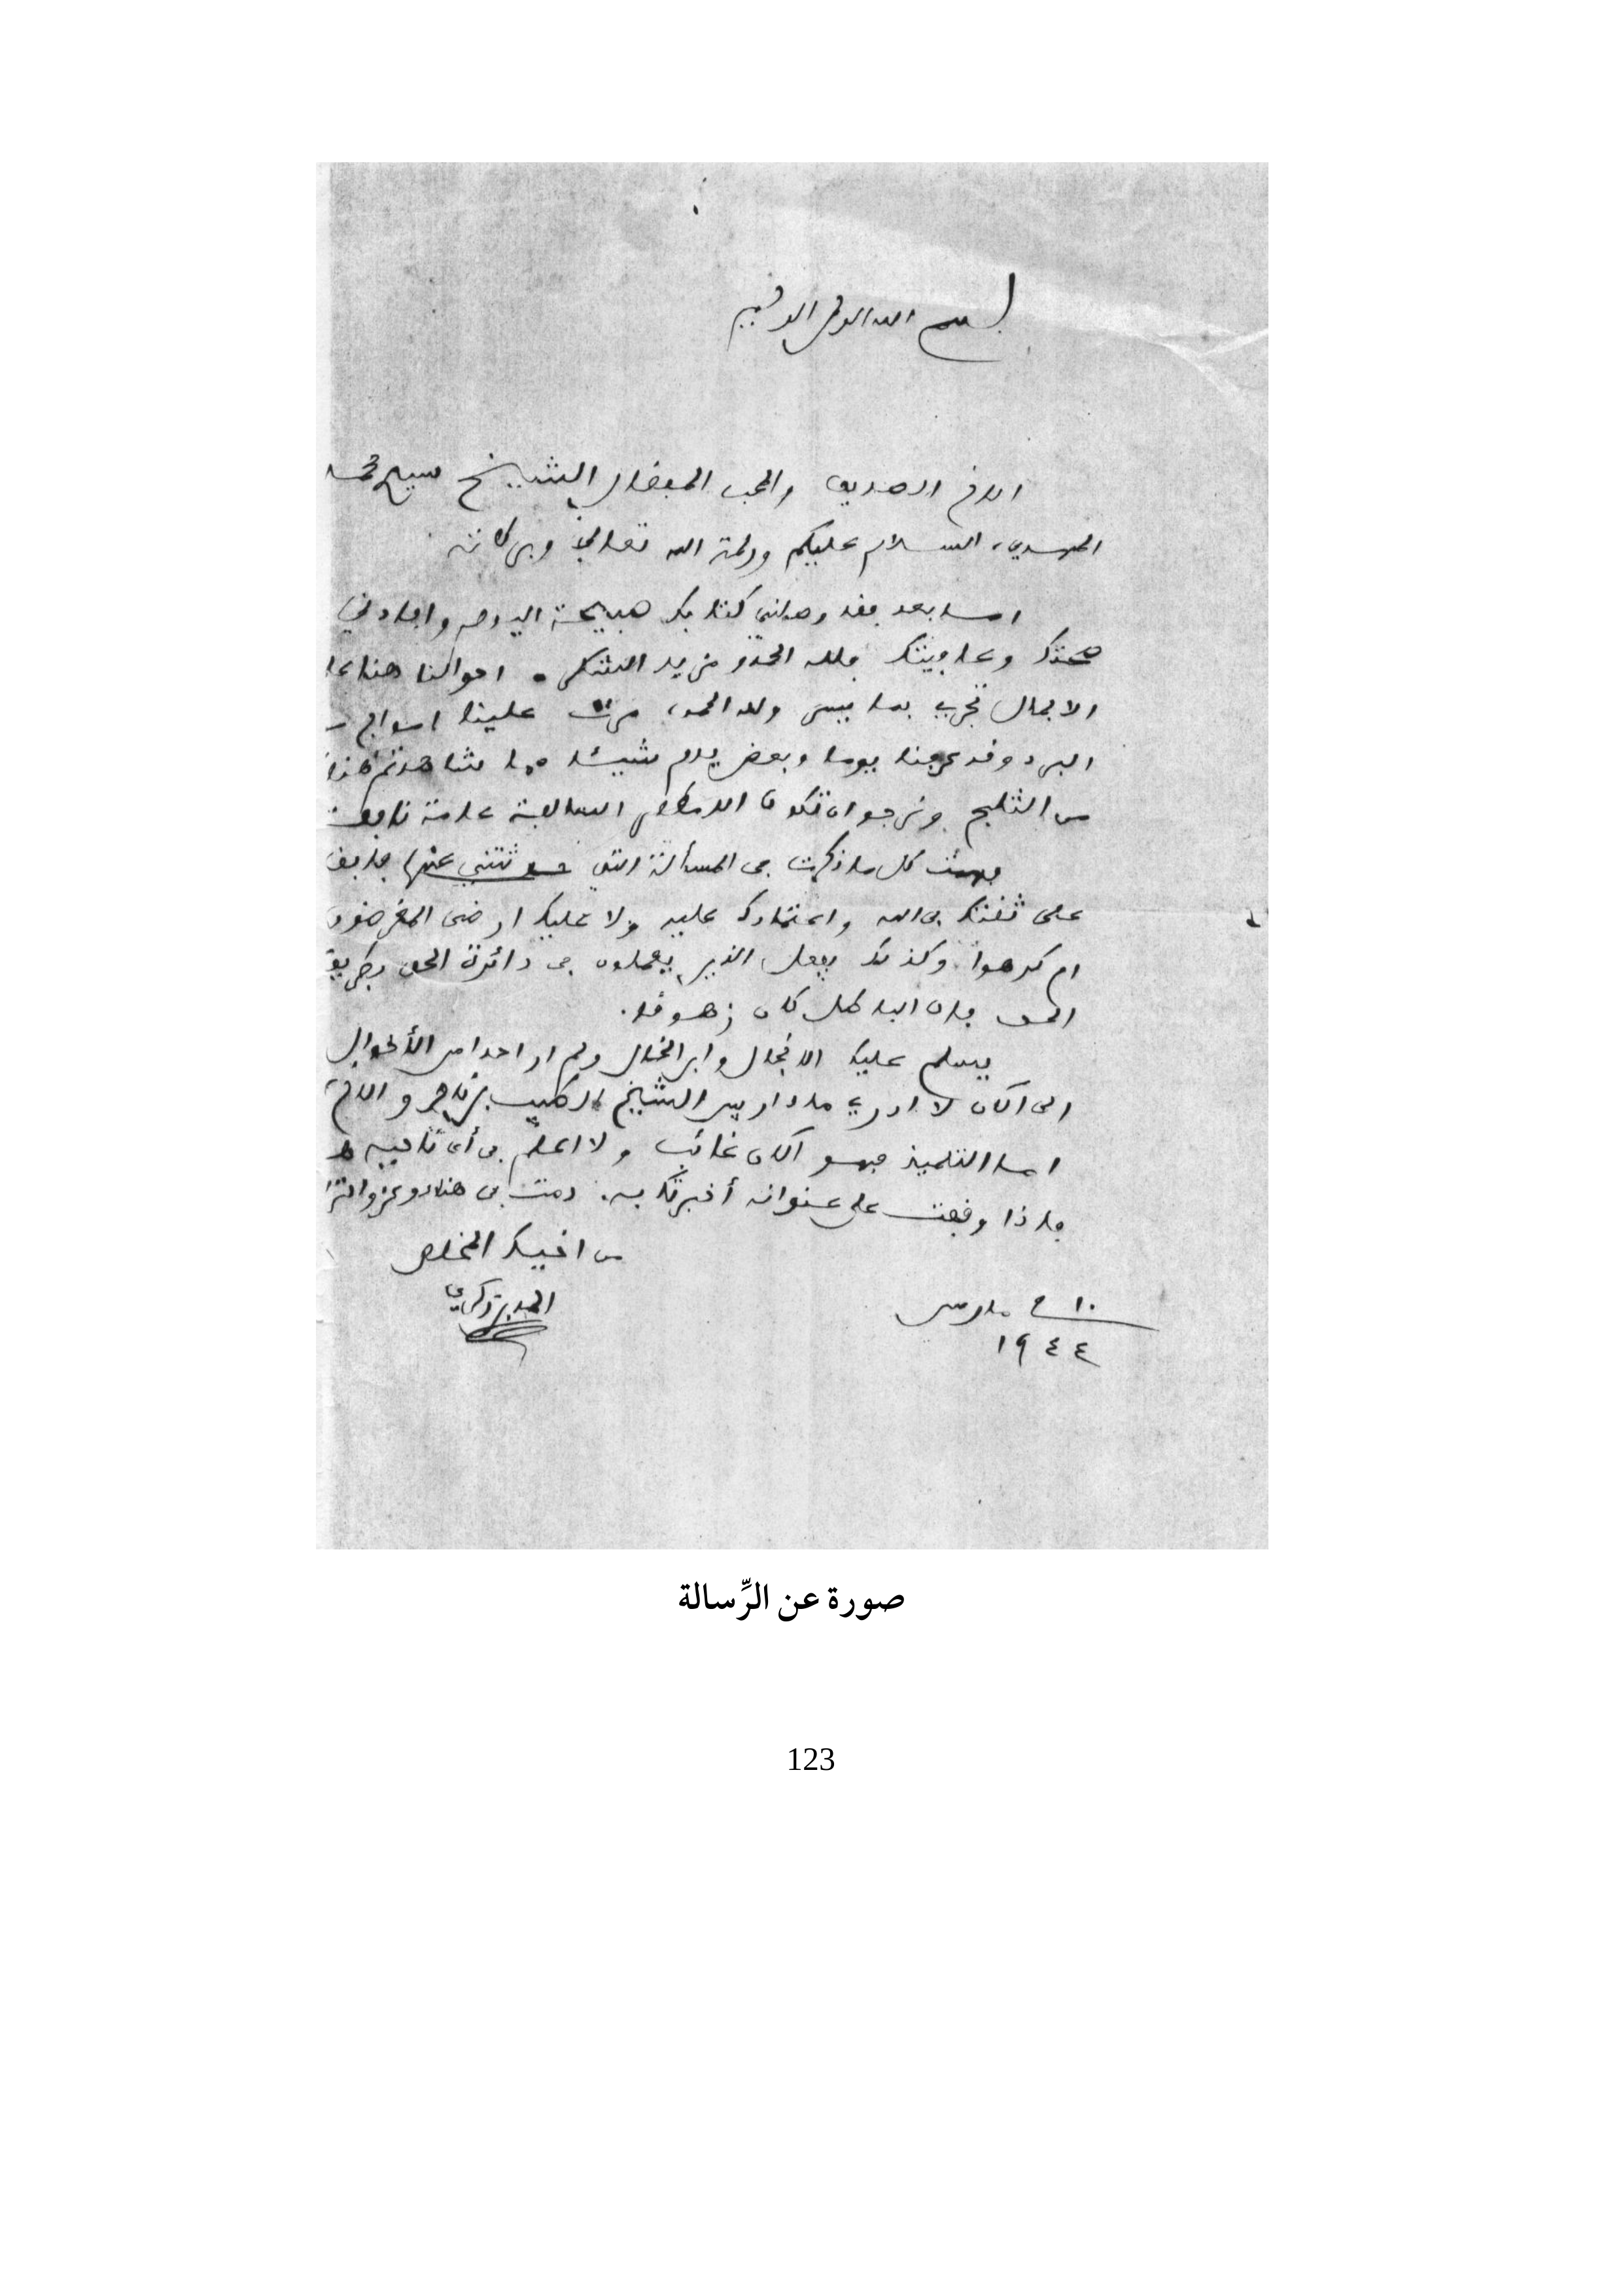 بسم الله الرحمن الرحيم
الاخ الصديق والمحب المفضال الشيخ سي محمد
المهدي، السلام عليكم ورحمة الله تعالى وبركاته
اما بعد فقد وصلني كتابك صبيحة اليوم وافادني
صحتك وعافيتك فلله الحمد ومزيد الشكر. احوالنا هنا على
الاجمال تجري بما يسر ولله الحمد، مرت علينا امواج من
البرد وقد عرفنا يوما وبعض يوم شيئا مما شاهدتم هنا
من الثلج ونرجو ان تكون الامطار السالفة عامة نافعة
فهمت كل ما ذكرت في المسألة التي حدثتني عنها فابق
على ثقتك بالله واعتمادك عليه ولا عليك ارضي المغرضون
ام كرهوا وكذلك يفعل الذين يعملون في دائرة الحق بطريق
الحق فان الباطل كان زهوقا.
يسلم عليك الانجال وابن الخال ولم ار احدا من الأخوال
الى الآن لا ادري ما دار بين الشيخ الطيب بن ناصر والاخ
اما التلميذ فهو الآن غائب ولا اعلم في أي ناحية هو
فاذا وقفت على عنوانه أخبرتك به. دمت في هناء وعز والسلام
من اخيك المخلص
احمد بن زكري
١٠ مارس
١٩٤٤
صورة عن الرِّسالة
123